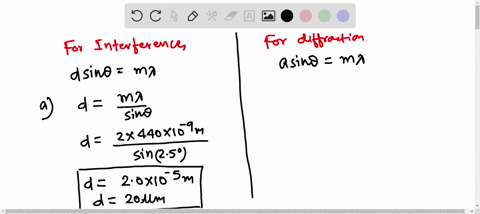 For Interference,
dsinθ = mλ
a) d = mλ / sinθ
d = 2×440×10⁻⁹m / sin(2.5°)
d = 2.0×10⁻⁵m
d = 20μm
For diffraction
asinθ = mλ